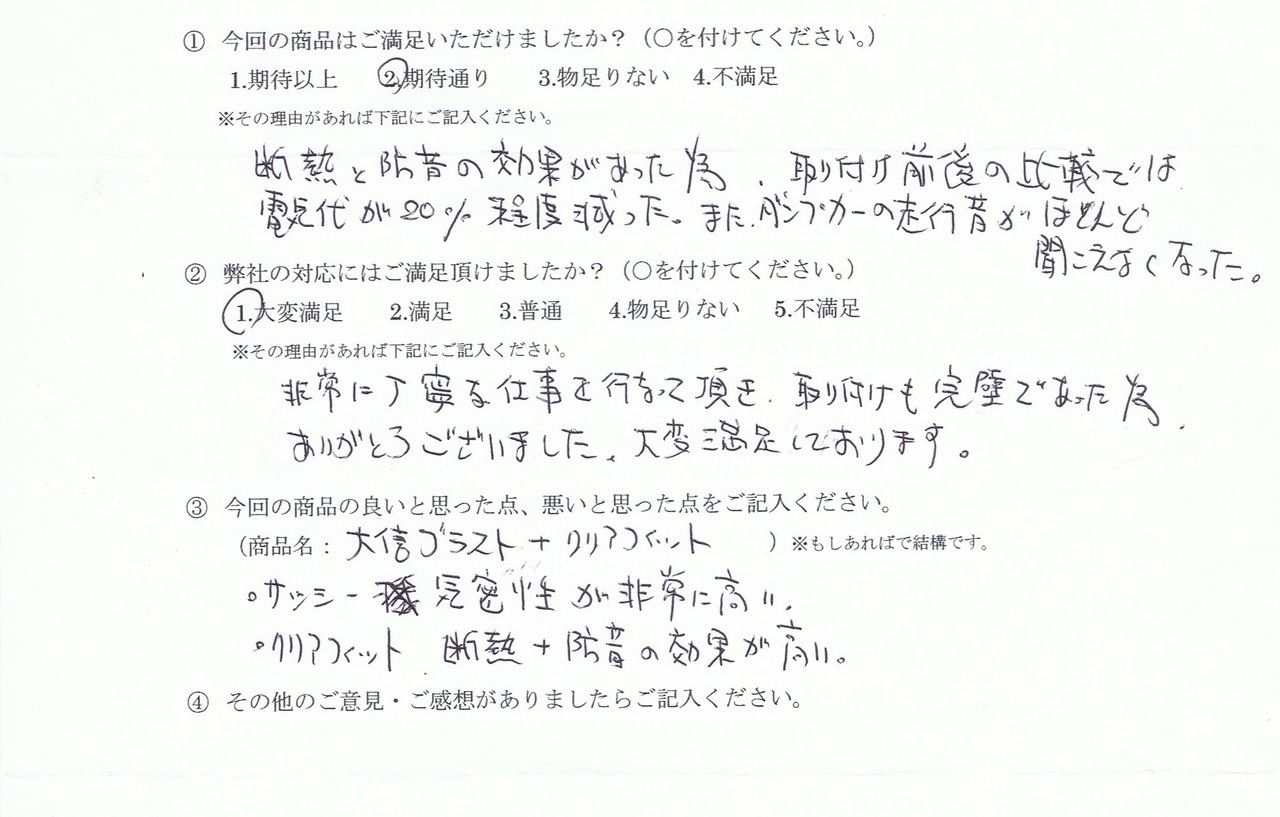 ① 今回の商品はご満足いただけましたか？（○を付けてください。）
1.期待以上 2.期待通り 3.物足りない 4.不満足
※その理由があれば下記にご記入ください。
断熱と防音の効果があった為、取付け前後の比較では
電気代が20%程度減った。また、ダンプカーの走行音がほとんど
聞こえなくなった。
② 弊社の対応にはご満足頂けましたか？（○を付けてください。）
1.大変満足 2.満足 3.普通 4.物足りない 5.不満足
※その理由があれば下記にご記入ください。
非常に丁寧な仕事を行なって頂き、取り付けも完璧であった為、
ありがとうございました、大変満足しております。
③ 今回の商品の良いと思った点、悪いと思った点をご記入ください。
（商品名：大信プラスト＋クリアフィット ）※もしあればで結構です。
・サッシー 気密性が非常に高い、
・クリアフィット 断熱＋防音の効果が高い。
④ その他のご意見・ご感想がありましたらご記入ください。